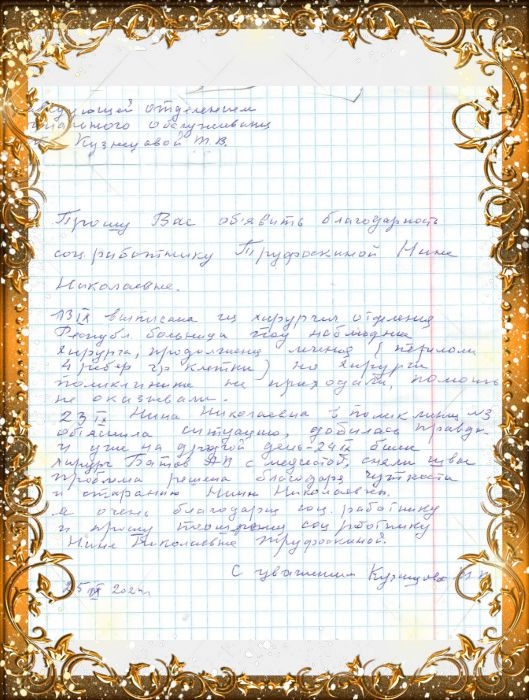 отделением
Обслуживания
Кузнецовой Т.В.
Прошу Вас объявить благодарность
соц. работнику Труфоскиной Нине
Николаевне.
13 IX выписана из хирургич отделения
больница под наблюдение
хирурга, продолжение лечения (перелом
4 ребер гр клетки) но хирурги
поликлиники не приходили, помощь
не оказывали.
23 IX Нина Николаевна в поликлинику №3
объяснила ситуацию, добилась
и уже на другой день - 24 IX были
хирург с медсестой, сняли швы
проблема решена благодаря чуткости
и старанию Нины Николаевны.
я очень благодарна соц. работнику
и прошу соц работнику
Нине Николаевне Труфоскиной.
С уважением
25 IX